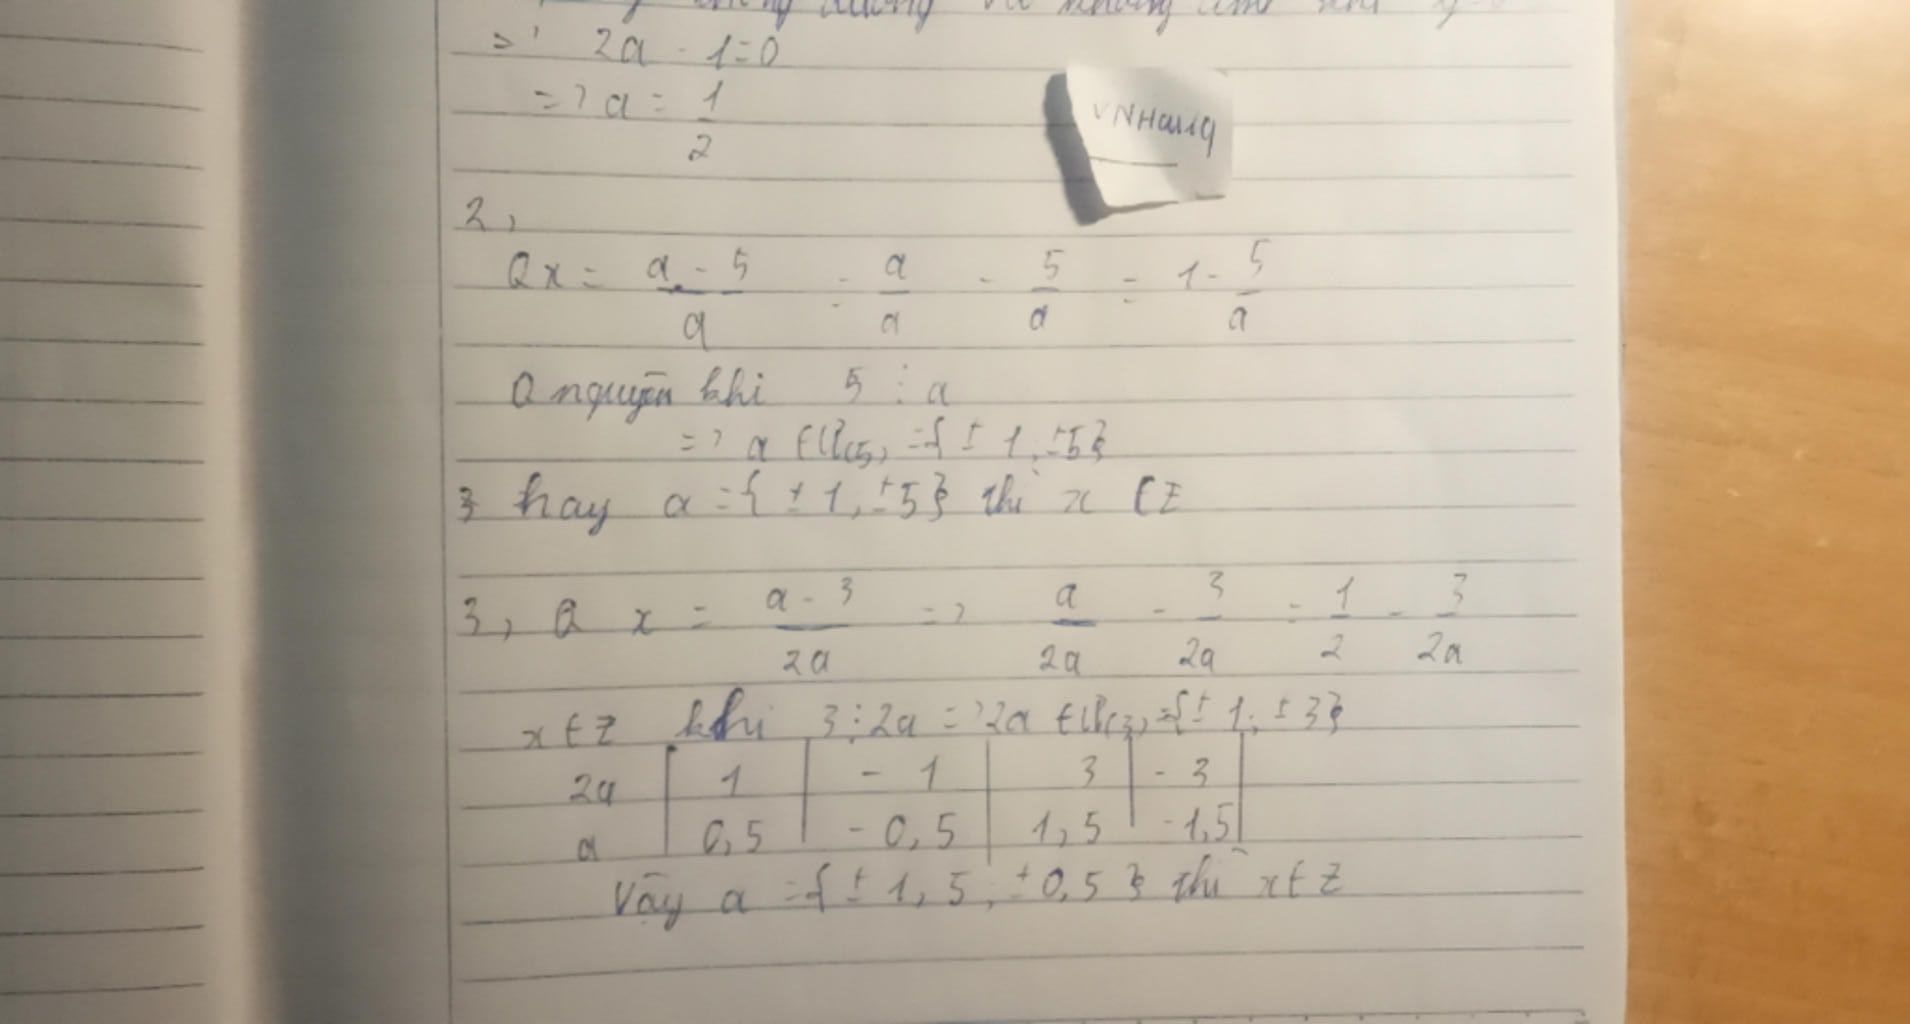 => 2a - 1 = 0
=> a = 1/2
VNHang
2,
Q x = (a - 5)/a = a/a - 5/a = 1 - 5/a
Q nguyên khi 5 ⋮ a
=> a ∈ Ư(5) = { ± 1, ±5}
hay a = { ± 1, ±5} thì x ∈ Z
3, Q x = (a - 3)/2a => a/2a - 3/2a = 1/2 - 3/2a
x ∈ Z khi 3 ⋮ 2a => 2a ∈ Ư(3) = {± 1; ± 3}
2a | 1 | - 1 | 3 | - 3
a | 0,5 | - 0,5 | 1,5 | - 1,5
Vậy a = {± 1,5; ±0,5} thì x ∈ Z